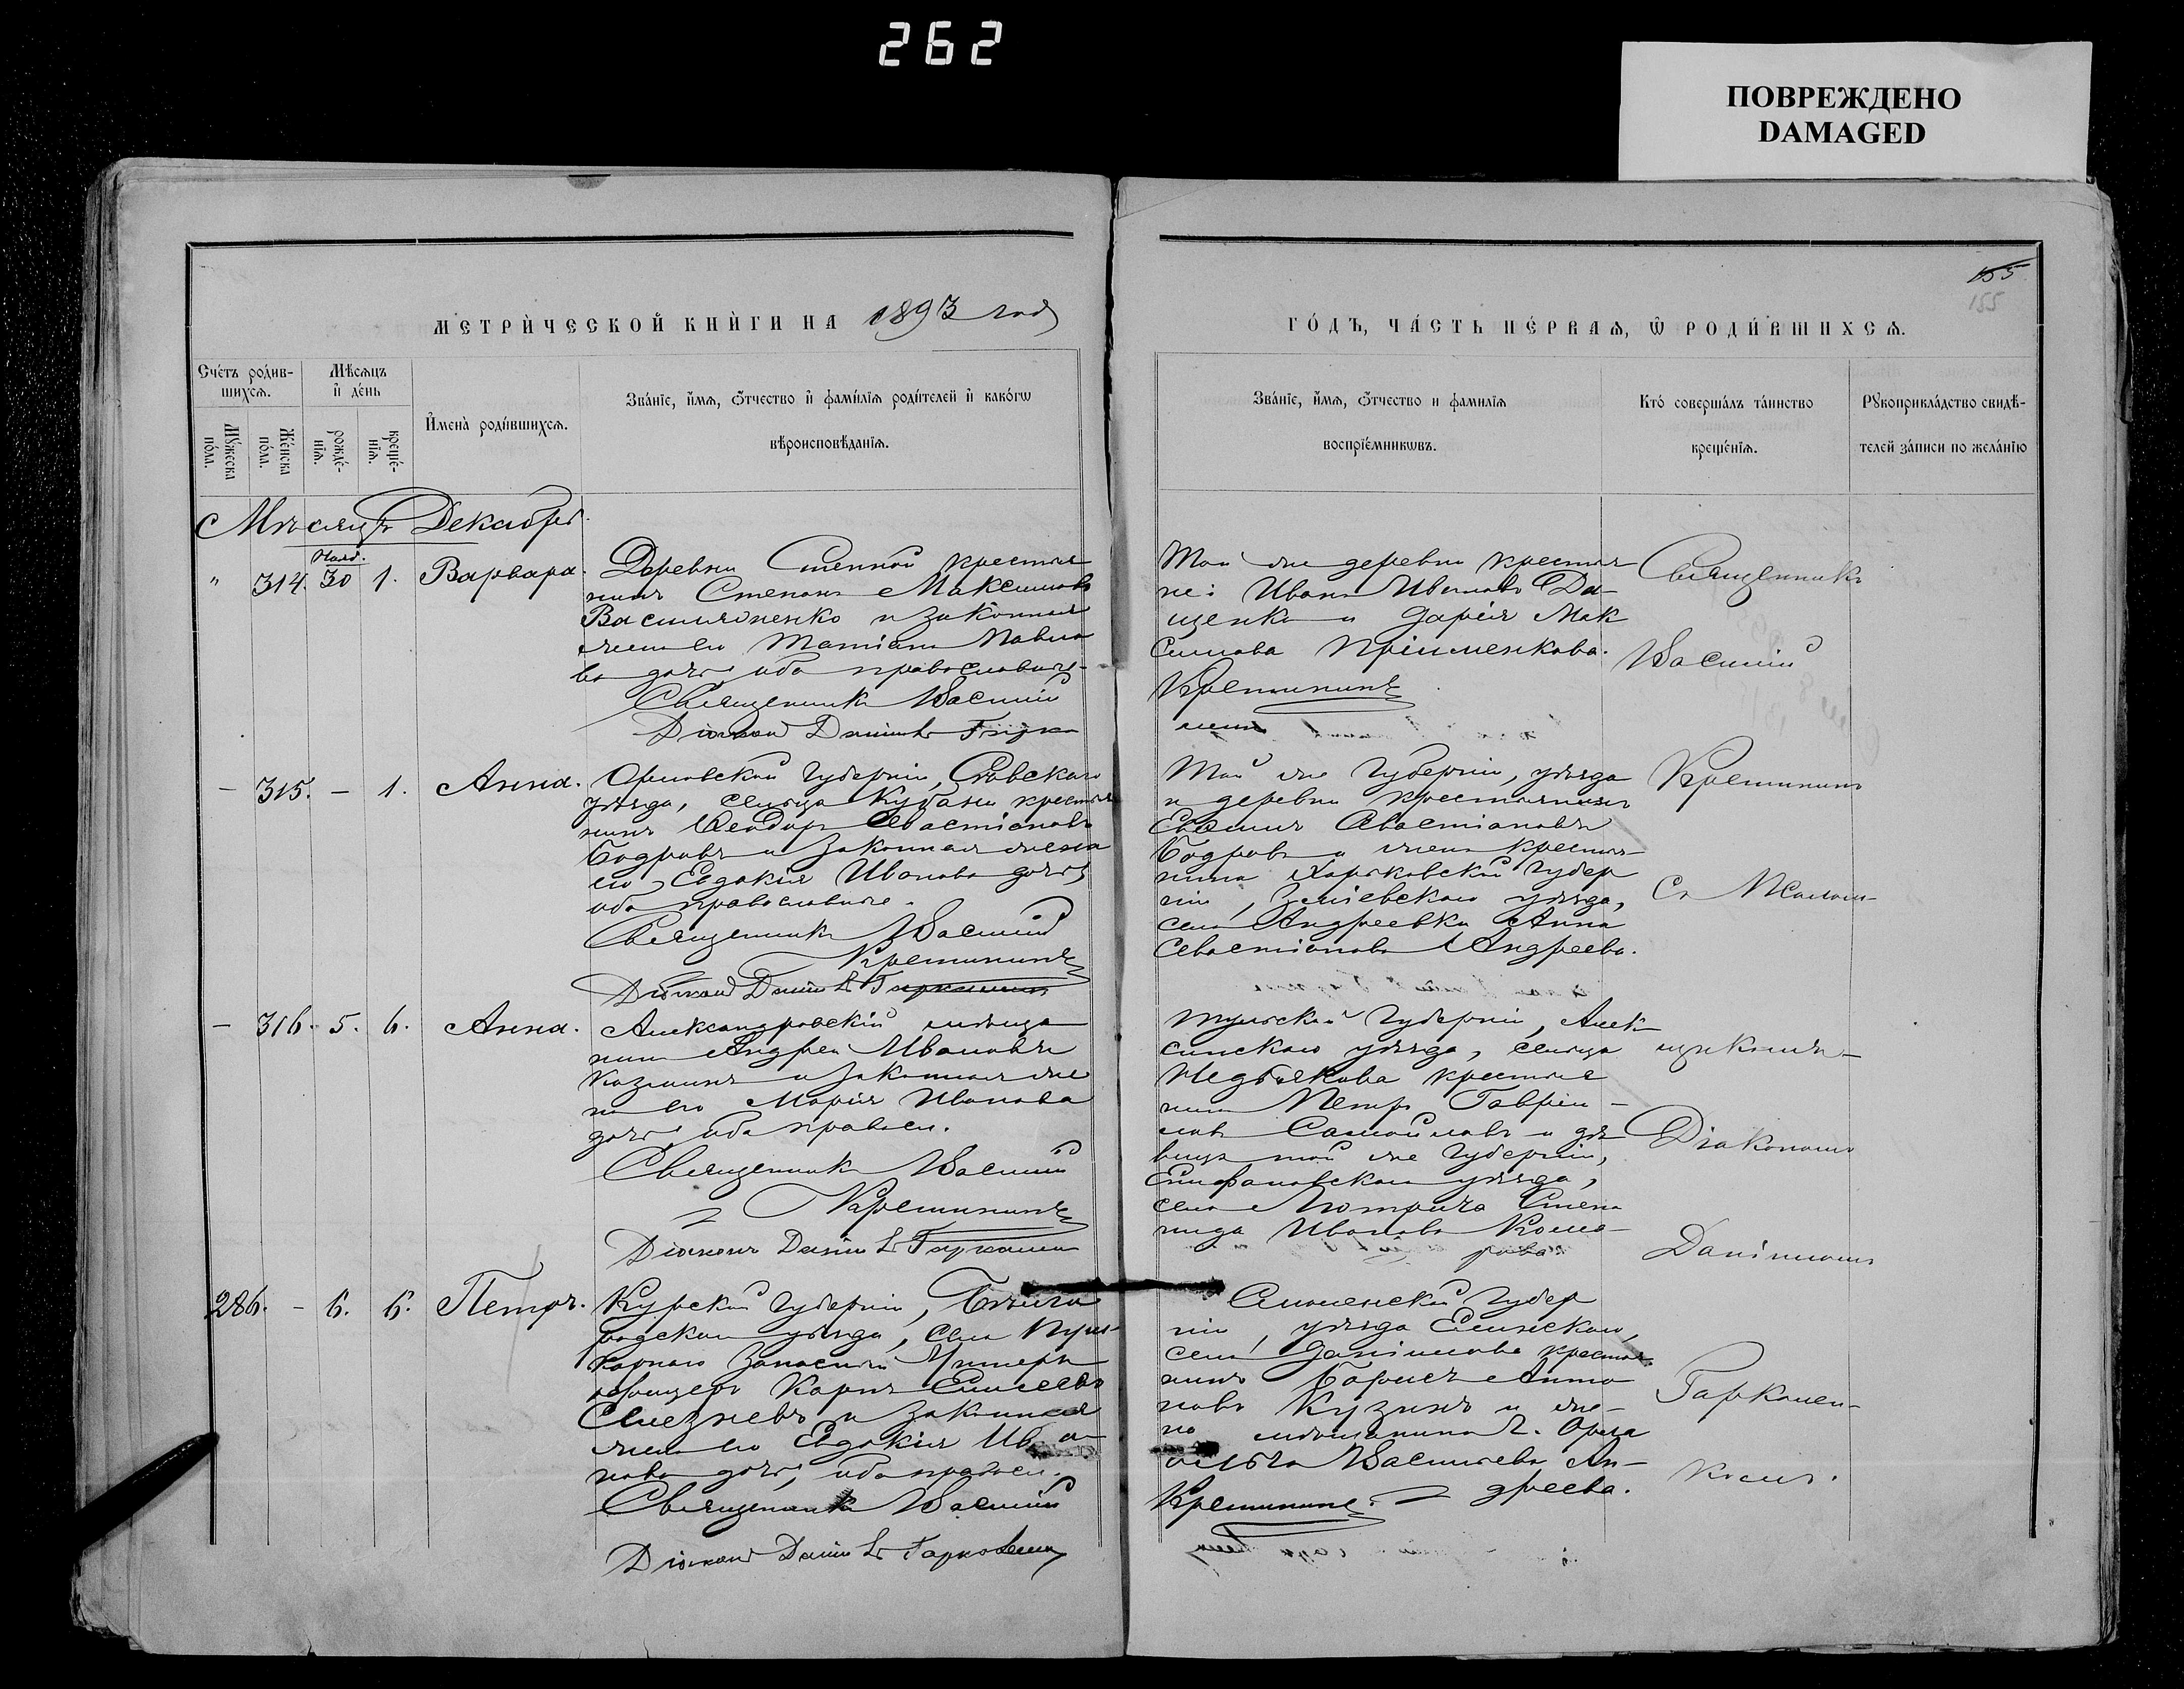 262
ПОВРЕЖДЕНО
DAMAGED
155
155
МЕТРИ́ЧЕСКОЙ КНИ́ГИ НА 1893 годъ
ГО́ДЪ, ЧА́СТЬ ПЕ́РВАѦ, Ѡ РОДИ́ВШИХСѦ.
Сче́тъ роди́в-
шихсѧ.
Мꙋ́жеска по́ла.
Же́нска по́ла.
Мѣ́сѧцъ
и҆ де́нь
рожде́-
нїѧ.
креще́-
нїѧ.
И҆мена̀ роди́вшихсѧ.
Зва́нїе, и҆́мѧ, ѻ҆́тчество и҆ фами́лїѧ роди́телей и҆ како́гѡ
вѣроисповѣ́данїѧ.
Зва́нїе, и҆́мѧ, ѻ҆́тчество и фами́лїѧ
воспрїе́мникѡвъ.
Кто̀ соверша́лъ та́инство
креще́нїѧ.
Рꙋкоприкла́дство свидѣ́-
телей за́писи по жела́нїю
Мѣсяцъ Декабрь.
" 314. Нояб. 30 1. Варвара.
Деревни Степной крестья
нинъ Степанъ Максимовъ
и законная
жена его Татiана Павло
ва дочь, оба православные.
Священникъ Василiй
Дiаконъ Данiилъ
Той же деревни крестья
не: Иванъ Ивановъ Да-
щенко и Дарiя Мак
симова
Крешининъ
Священникъ
Василiй
- 315. - 1. Анна.
Орловской губернiи, Сѣвскаго
уѣзда, сельца крестья
нинъ Ѳеодоръ Севастiановъ
Бодровъ и законная жена
его Евдокiя Иванова дочь,
оба православные.
Священникъ Василiй
Крешининъ
Дiаконъ Данiилъ Гаркошин
Той же губернiи, уѣзда
и деревни крестьянинъ
Севастiановъ
Бодровъ и жена крестья-
нина Харьковской губер
нiи, Змiевскаго уѣзда,
села Андреевки Анна
Севастiанова Андреева.
Крешининъ
Съ Псалом-
- 316. 5. 6. Анна.
Александровскiй мѣща
нинъ Андрей Ивановъ
Козминъ и законная же
на его Марiя Иванова
дочь, оба правосл.
Священникъ Василiй
Крешининъ
Дiаконъ Данiилъ Гаркошин
Тульской губернiи, Алек
синскаго уѣзда, сельца
крестья
нинъ Петръ Гаврiи-
ловъ Самойловъ и дѣ
вица той же губернiи,
Епифановскаго уѣзда,
села Степа
нида Иванова Кома
рова.
щикомъ-
Дiакономъ
Данiиломъ
286. - 6. 6. Петръ.
Курской губернiи, Бѣлго
родскаго уѣзда, села Пуш-
карнаго запасный Унтеръ
офицеръ Карпъ Елисеевъ
и законная
жена его Евдокiя Ива
нова дочь, оба правосл.
Священникъ Василiй
Дiаконъ Данiилъ Гаркошин
Смоленской губер
нiи, уѣзда Ельнскаго,
села Данiилова крестья
нинъ Борисъ Анто
новъ Кузинъ и же-
на мѣщанина г. Орла
Ольга Васильева Ан-
дреева.
Крешининъ
Гаркошен-
комъ.